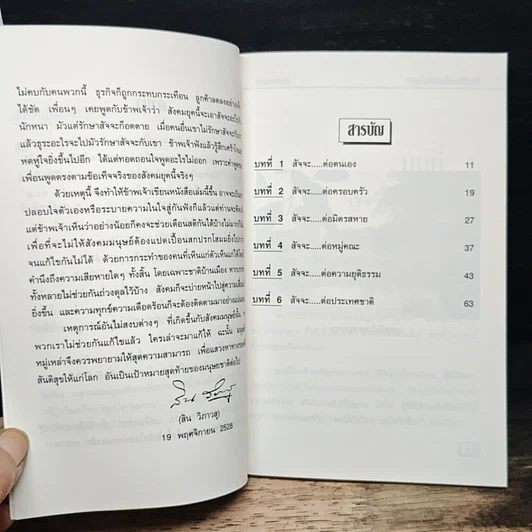 ไม่คบกับคนพวกนี้ ธุรกิจก็ถูกกระทบกระเทือน ลูกค้าลดลงอย่างเห็
ได้ชัด เพื่อนๆ เคยพูดกับข้าพเจ้าว่า สังคมยุคนี้จะเอาสัจจะอะไร
นักหนา มัวแต่รักษาสัจจะก็อดตาย เมื่อคนอื่นเขาไม่รักษาสัจจะกัน
แล้วธุระอะไรจะไปมัวรักษาสัจจะกับเขา ข้าพเจ้าฟังแล้วรู้สึกเศร้าใจ
หดหู่ใจยิ่งขึ้นไปอีก ได้แต่ทอดถอนใจพูดอะไรไม่ออก เพราะคำพูด
เพื่อนพูดตรงตามข้อเท็จจริงของสังคมยุคนี้จริงๆ
ด้วยเหตุนี้ จึงทำให้ข้าพเจ้าเขียนหนังสือเล่มนี้ขึ้น อาจจะเป็น
ปลอบใจตัวเองหรือระบายความในใจสู่กันฟังก็แล้วแต่ท่านจะคิด
แต่ข้าพเจ้าเห็นว่าอย่างน้อยก็คงจะช่วยเตือนสติกันได้บ้างไม่มาก
เพื่อที่จะไม่ให้สังคมมนุษย์ต้องแปดเปื้อนสกปรกโสมมยิ่งไป
จนแก้ไขกันไม่ได้ ด้วยการกระทำของคนที่เห็นแก่ตัวเห็นแก่ได้
คำนึงถึงความเสียหายใดๆ ทั้งสิ้น โดยเฉพาะชาติบ้านเมือง หาก
ทั้งหลายไม่ช่วยกันถ่วงดุลไว้บ้าง สังคมก็จะบ่ายหน้าไปสู่ความเสื่อม
ยิ่งขึ้น และความทุกข์ความเดือดร้อนก็จะต้องติดตามมาอย่างแน่นอน
เหตุการณ์อันไม่สงบต่างๆ ที่เกิดขึ้นกับสังคมมนุษย์นั้น
พวกเราไม่ช่วยกันแก้ไขแล้ว ใครเล่าจะมาแก้ให้ ฉะนั้น
หมู่เหล่าจึงควรพยายามให้สุดความสามารถ เพื่อแสวงหา
สันติสุขให้แก่โลก อันเป็นเป้าหมายสุดท้ายของมนุษยชาติต่อไป
(สิน วิภาวสุ)
19 พฤศจิกายน 2528
สารบัญ
บทที่ 1 สัจจะ.....ต่อตนเอง 11
บทที่ 2 สัจจะ.....ต่อครอบครัว 19
บทที่ 3 สัจจะ.....ต่อมิตรสหาย 27
บทที่ 4 สัจจะ.....ต่อหมู่คณะ 37
บทที่ 5 สัจจะ.....ต่อความยุติธรรม 43
บทที่ 6 สัจจะ.....ต่อประเทศชาติ 63